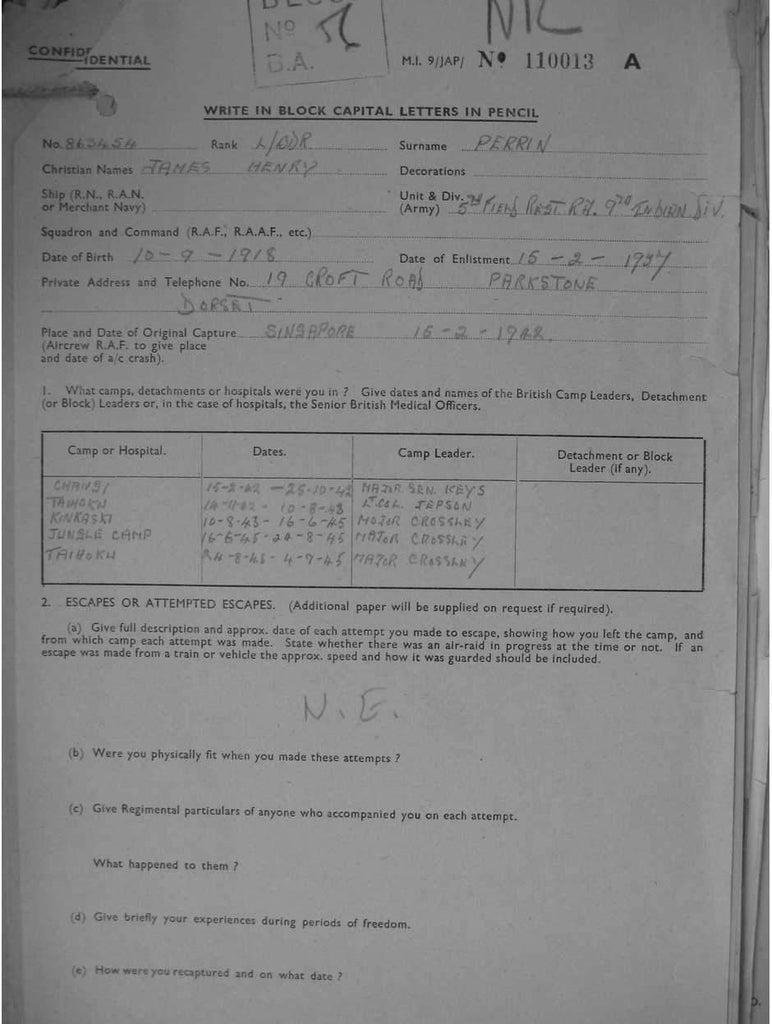 Nº
B.A.
NIL
CONFIDENTIAL
M.I. 9/JAP/ Nº 110013 A
WRITE IN BLOCK CAPITAL LETTERS IN PENCIL
No. 863454 Rank L/BDR Surname PERRIN
Christian Names JAMES HENRY Decorations
Ship (R.N., R.A.N. or Merchant Navy)
Unit & Div. (Army) 5TH FIELD REGT RA. 9TH INDIAN DIV.
Squadron and Command (R.A.F., R.A.A.F., etc.)
Date of Birth 10-9-1918 Date of Enlistment 15-2-1937
Private Address and Telephone No. 19 CROFT ROAD PARKSTONE
DORSET
Place and Date of Original Capture SINGAPORE 15-2-1942
(Aircrew R.A.F. to give place
and date of a/c crash).
1. What camps, detachments or hospitals were you in ? Give dates and names of the British Camp Leaders, Detachment
(or Block) Leaders or, in the case of hospitals, the Senior British Medical Officers.
Camp or Hospital. Dates. Camp Leader. Detachment or Block Leader (if any).
CHANGI 15-2-42 - 25-10-42 MAJOR GEN. KEYS
TAIHOKU 14-11-42 - 10-8-43 LT.COL. JEPSON
KINKASKI 10-8-43 - 16-6-45 MAJOR CROSSLEY
JUNGLE CAMP 16-6-45 - 24-8-45 MAJOR CROSSLEY
TAIHOKU 24-8-45 - 4-9-45 MAJOR CROSSLEY
2. ESCAPES OR ATTEMPTED ESCAPES. (Additional paper will be supplied on request if required).
(a) Give full description and approx. date of each attempt you made to escape, showing how you left the camp, and
from which camp each attempt was made. State whether there was an air-raid in progress at the time or not. If an
escape was made from a train or vehicle the approx. speed and how it was guarded should be included.
N.E.
(b) Were you physically fit when you made these attempts ?
(c) Give Regimental particulars of anyone who accompanied you on each attempt.
What happened to them ?
(d) Give briefly your experiences during periods of freedom.
(e) How were you recaptured and on what date ?